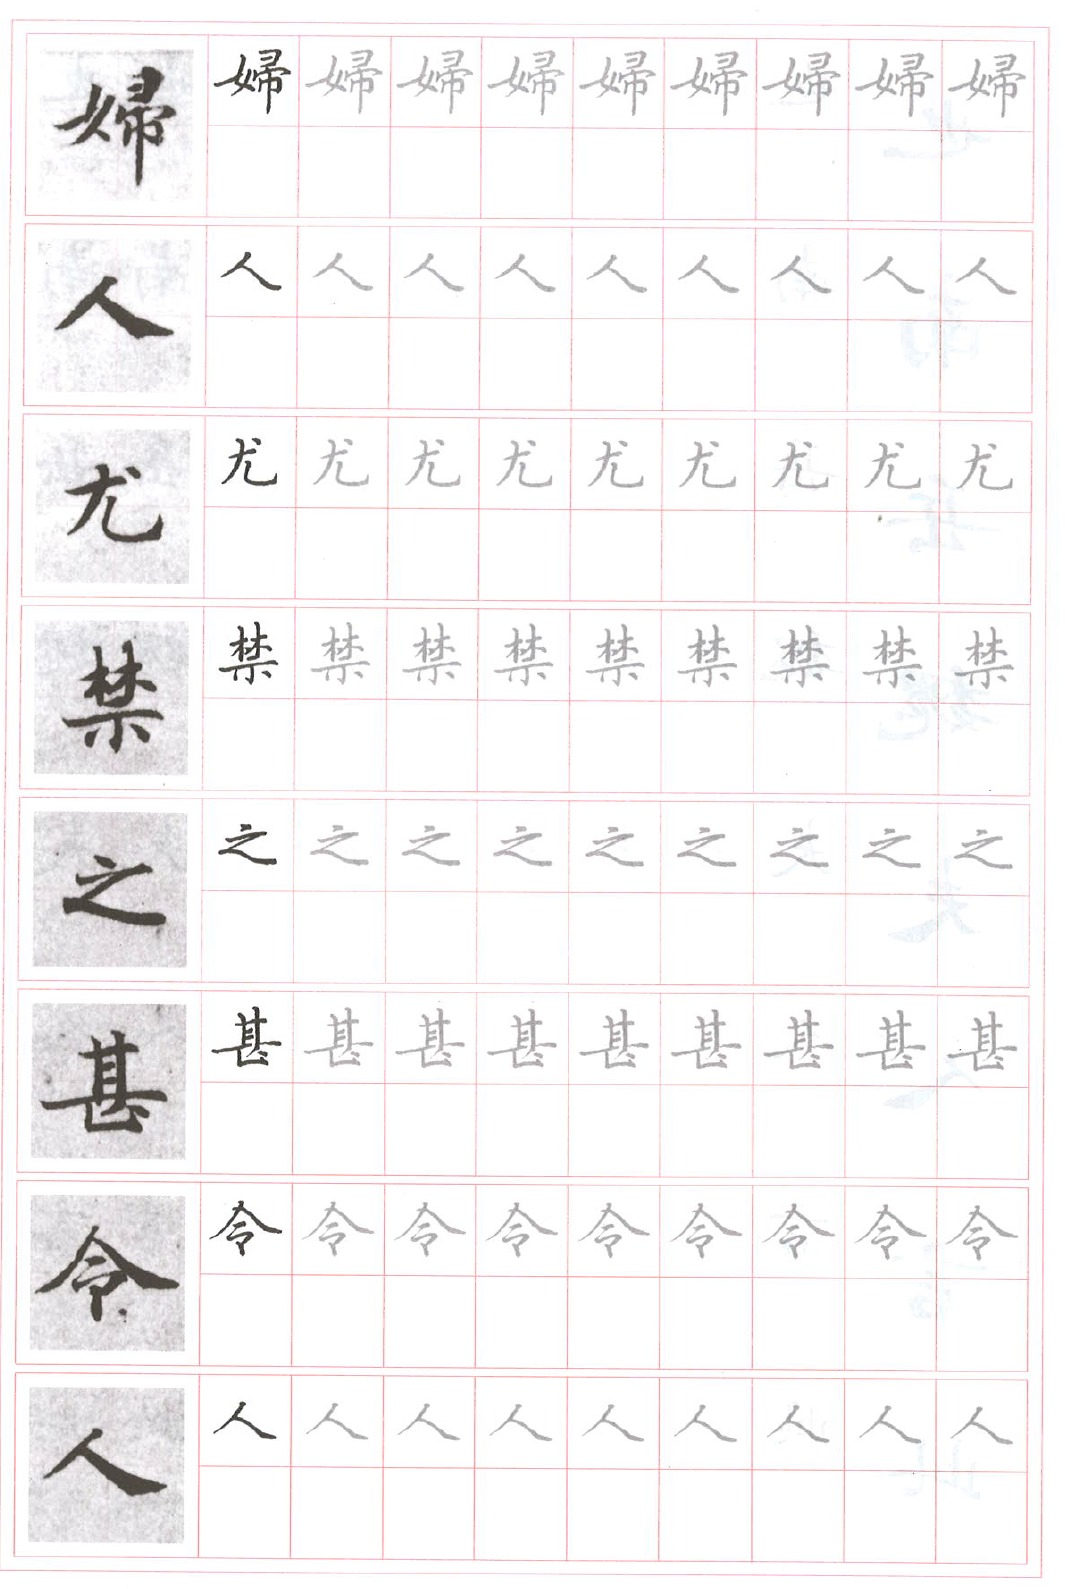 婦 婦 婦 婦 婦 婦 婦 婦 婦 婦
人 人 人 人 人 人 人 人 人 人
尤 尤 尤 尤 尤 尤 尤 尤 尤 尤
禁 禁 禁 禁 禁 禁 禁 禁 禁 禁
之 之 之 之 之 之 之 之 之 之
甚 甚 甚 甚 甚 甚 甚 甚 甚 甚
令 令 令 令 令 令 令 令 令 令
人 人 人 人 人 人 人 人 人 人